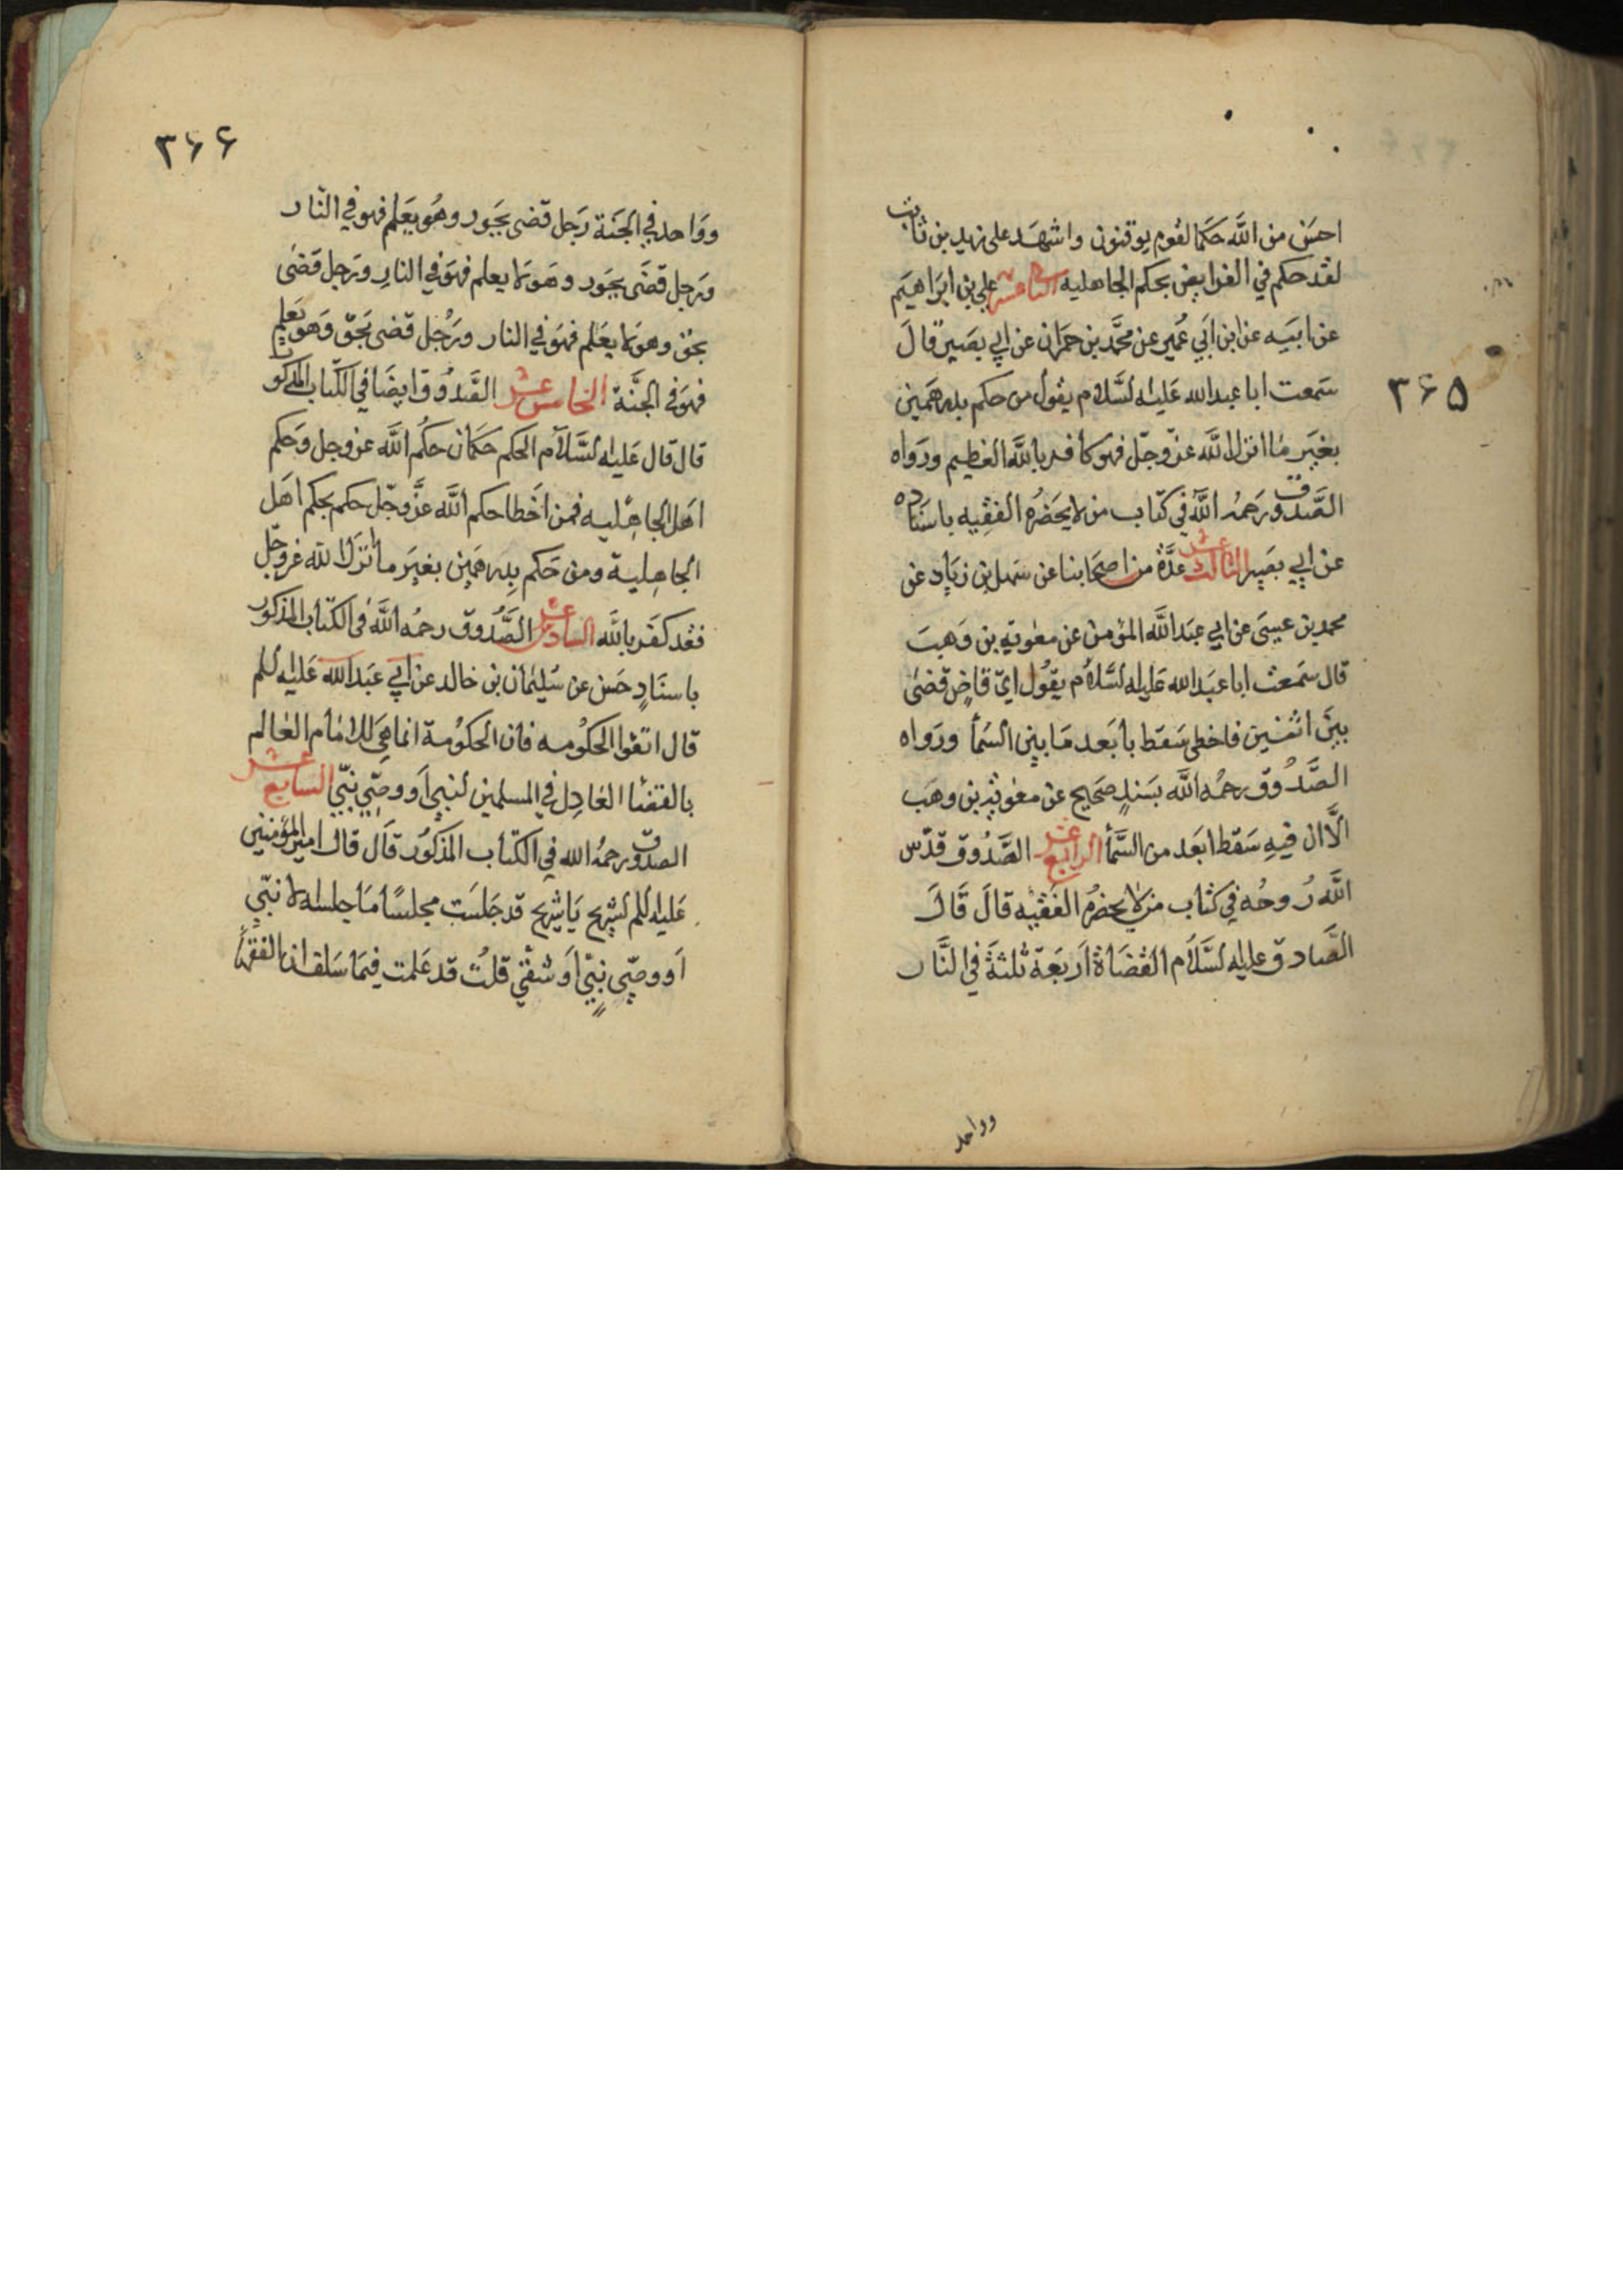 ۳۶۵
احسن من الله حكما لقوم يوقنون واشهد على زيد بن ثابت
لقد حكم في الفرايض بحكم الجاهليه الثانى عشر على بن ابراهيم
عن ابيه عن ابن ابي عمير عن محمد بن حمران عن ابي بصير قال
سمعت ابا عبد الله عليه السلام يقول من حكم بدرهمين
بغير ما انزل الله عز وجل فهو كافر بالله العظيم ورواه
الصدوق رحمه الله في كتاب من لا يحضره الفقيه باسناده
عن ابي بصير الثالث عشر عدة من اصحابنا عن سهل بن زياد عن
محمد بن عيسى عن ابي عبد الله المؤمن عن معوية بن وهب
قال سمعت ابا عبد الله عليه السلام يقول اي قاض قضى
بين اثنين فاخطى سقط بابعد ما بين السمأ ورواه
الصدوق رحمه الله بسند صحيح عن معوية بن وهب
الا ان فيه سقط ابعد من السمأ الرابع عشر الصدوق قدس
الله روحه في كتاب من لا يحضره الفقيه قال قال
الصادق عليه السلام القضاة اربعة ثلثة في النار
وواحد
۳۶۶
وواحد في الجنة رجل قضى بجور وهو يعلم فهو في النار
ورجل قضى بجور وهو لا يعلم فهو في النار ورجل قضى
بحق وهو لا يعلم فهو في النار ورجل قضى بحق وهو يعلم
فهو في الجنة الخامس عشر الصدوق ايضا في الكتاب المذكور
قال قال عليه السلام الحكم حكمان حكم الله عز وجل وحكم
اهل الجاهلية فمن اخطا حكم الله عز وجل حكم بحكم اهل
الجاهلية ومن حكم بدرهمين بغير ما انزل الله عز وجل
فقد كفر بالله السادس عشر الصدوق رحمه الله في الكتاب المذكور
باسناد حسن عن سليمان بن خالد عن ابي عبد الله عليه السلم
قال اتقوا الحكومه فان الحكومة انما هي للامام العالم
بالقضأ العادل في المسلمين لنبي او وصي نبي السابع عشر
الصدوق رحمه الله في الكتاب المذكور قال قال امير المؤمنين
عليه السلم لشريح يا شريح قد جلست مجلسا ما جلسه الا نبي
او وصي نبي او شقي قلت قد علمت فيما سلف ان الفقهأ